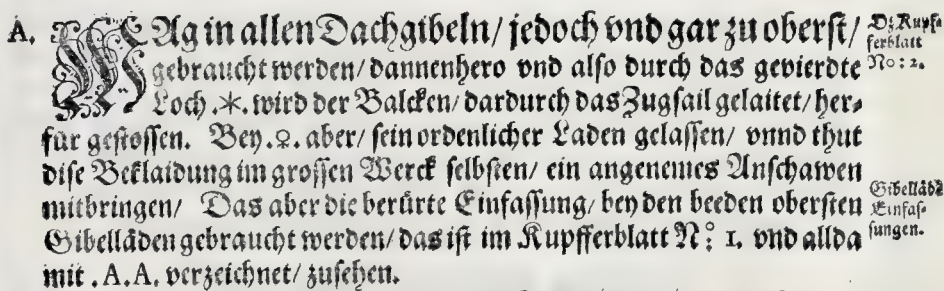 A. MAg in allen Dachgibeln/ jedoch vnd gar zu oberst/
gebraucht werden/ dannenhero vnd also durch das gevierdte
Loch .*. wird der Balcken/ dardurch das Zugsail gelaitet/ her⸗
für gestossen. Bey .♀. aber/ sein ordenlicher Laden gelassen/ vnnd thut
dise Beklaidung im grossen Werck selbsten/ ein angenemes Anschawen
mitbringen/ Das aber die berürte Einfassung/ bey den beeden obersten
Gibelläden gebraucht werden/ das ist im Kupfferblatt N: 1. vnd allda
mit .A.A. verzeichnet/ zusehen.
D: Kupf⸗
ferblatt
No: 2.
Gibelläd
Einfas⸗
sungen.